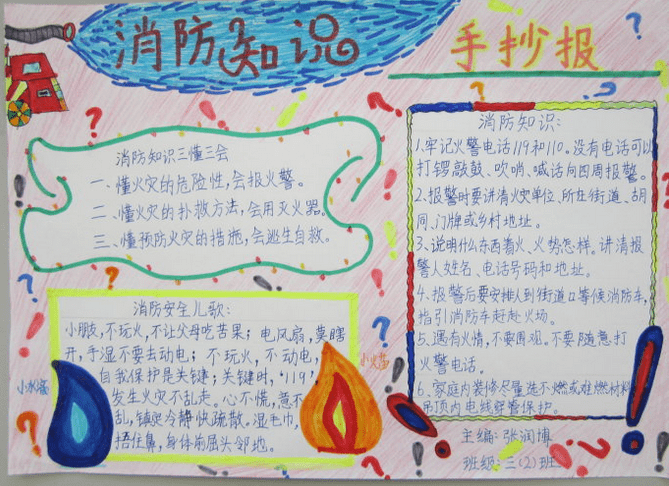 消防知识
手抄报
消防知识三懂三会
一、懂火灾的危险性,会报火警。
二、懂火灾的扑救方法,会用灭火器。
三、懂预防火灾的措施,会逃生自救。
消防安全儿歌:
小朋友,不玩火,不让父母吃苦果;电风扇,莫瞎
开,手湿不要去动电;不玩火,不动电,
自我保护是关键;关键时,"119",
发生火灾不乱走。心不慌,意不
乱,镇定冷静快疏散。湿毛巾,
捂住鼻,身体前屈头邻地。
小水滴
小火苗
消防知识:
1.牢记火警电话119和110。没有电话可以
打锣敲鼓、吹哨、喊话向四周报警。
2.报警时要讲清火灾单位、所在街道、胡
同、门牌或乡村地址。
3.说明什么东西着火、火势怎样。讲清报
警人姓名、电话号码和地址。
4.报警后要安排人到街道口等候消防车,
指引消防车赶赴火场。
5.遇有火情,不要围观。不要随意打
火警电话。
6.家庭内装修尽量选不燃或难燃材料
吊顶内电线穿管保护。
主编:张润博
班级:三(2)班